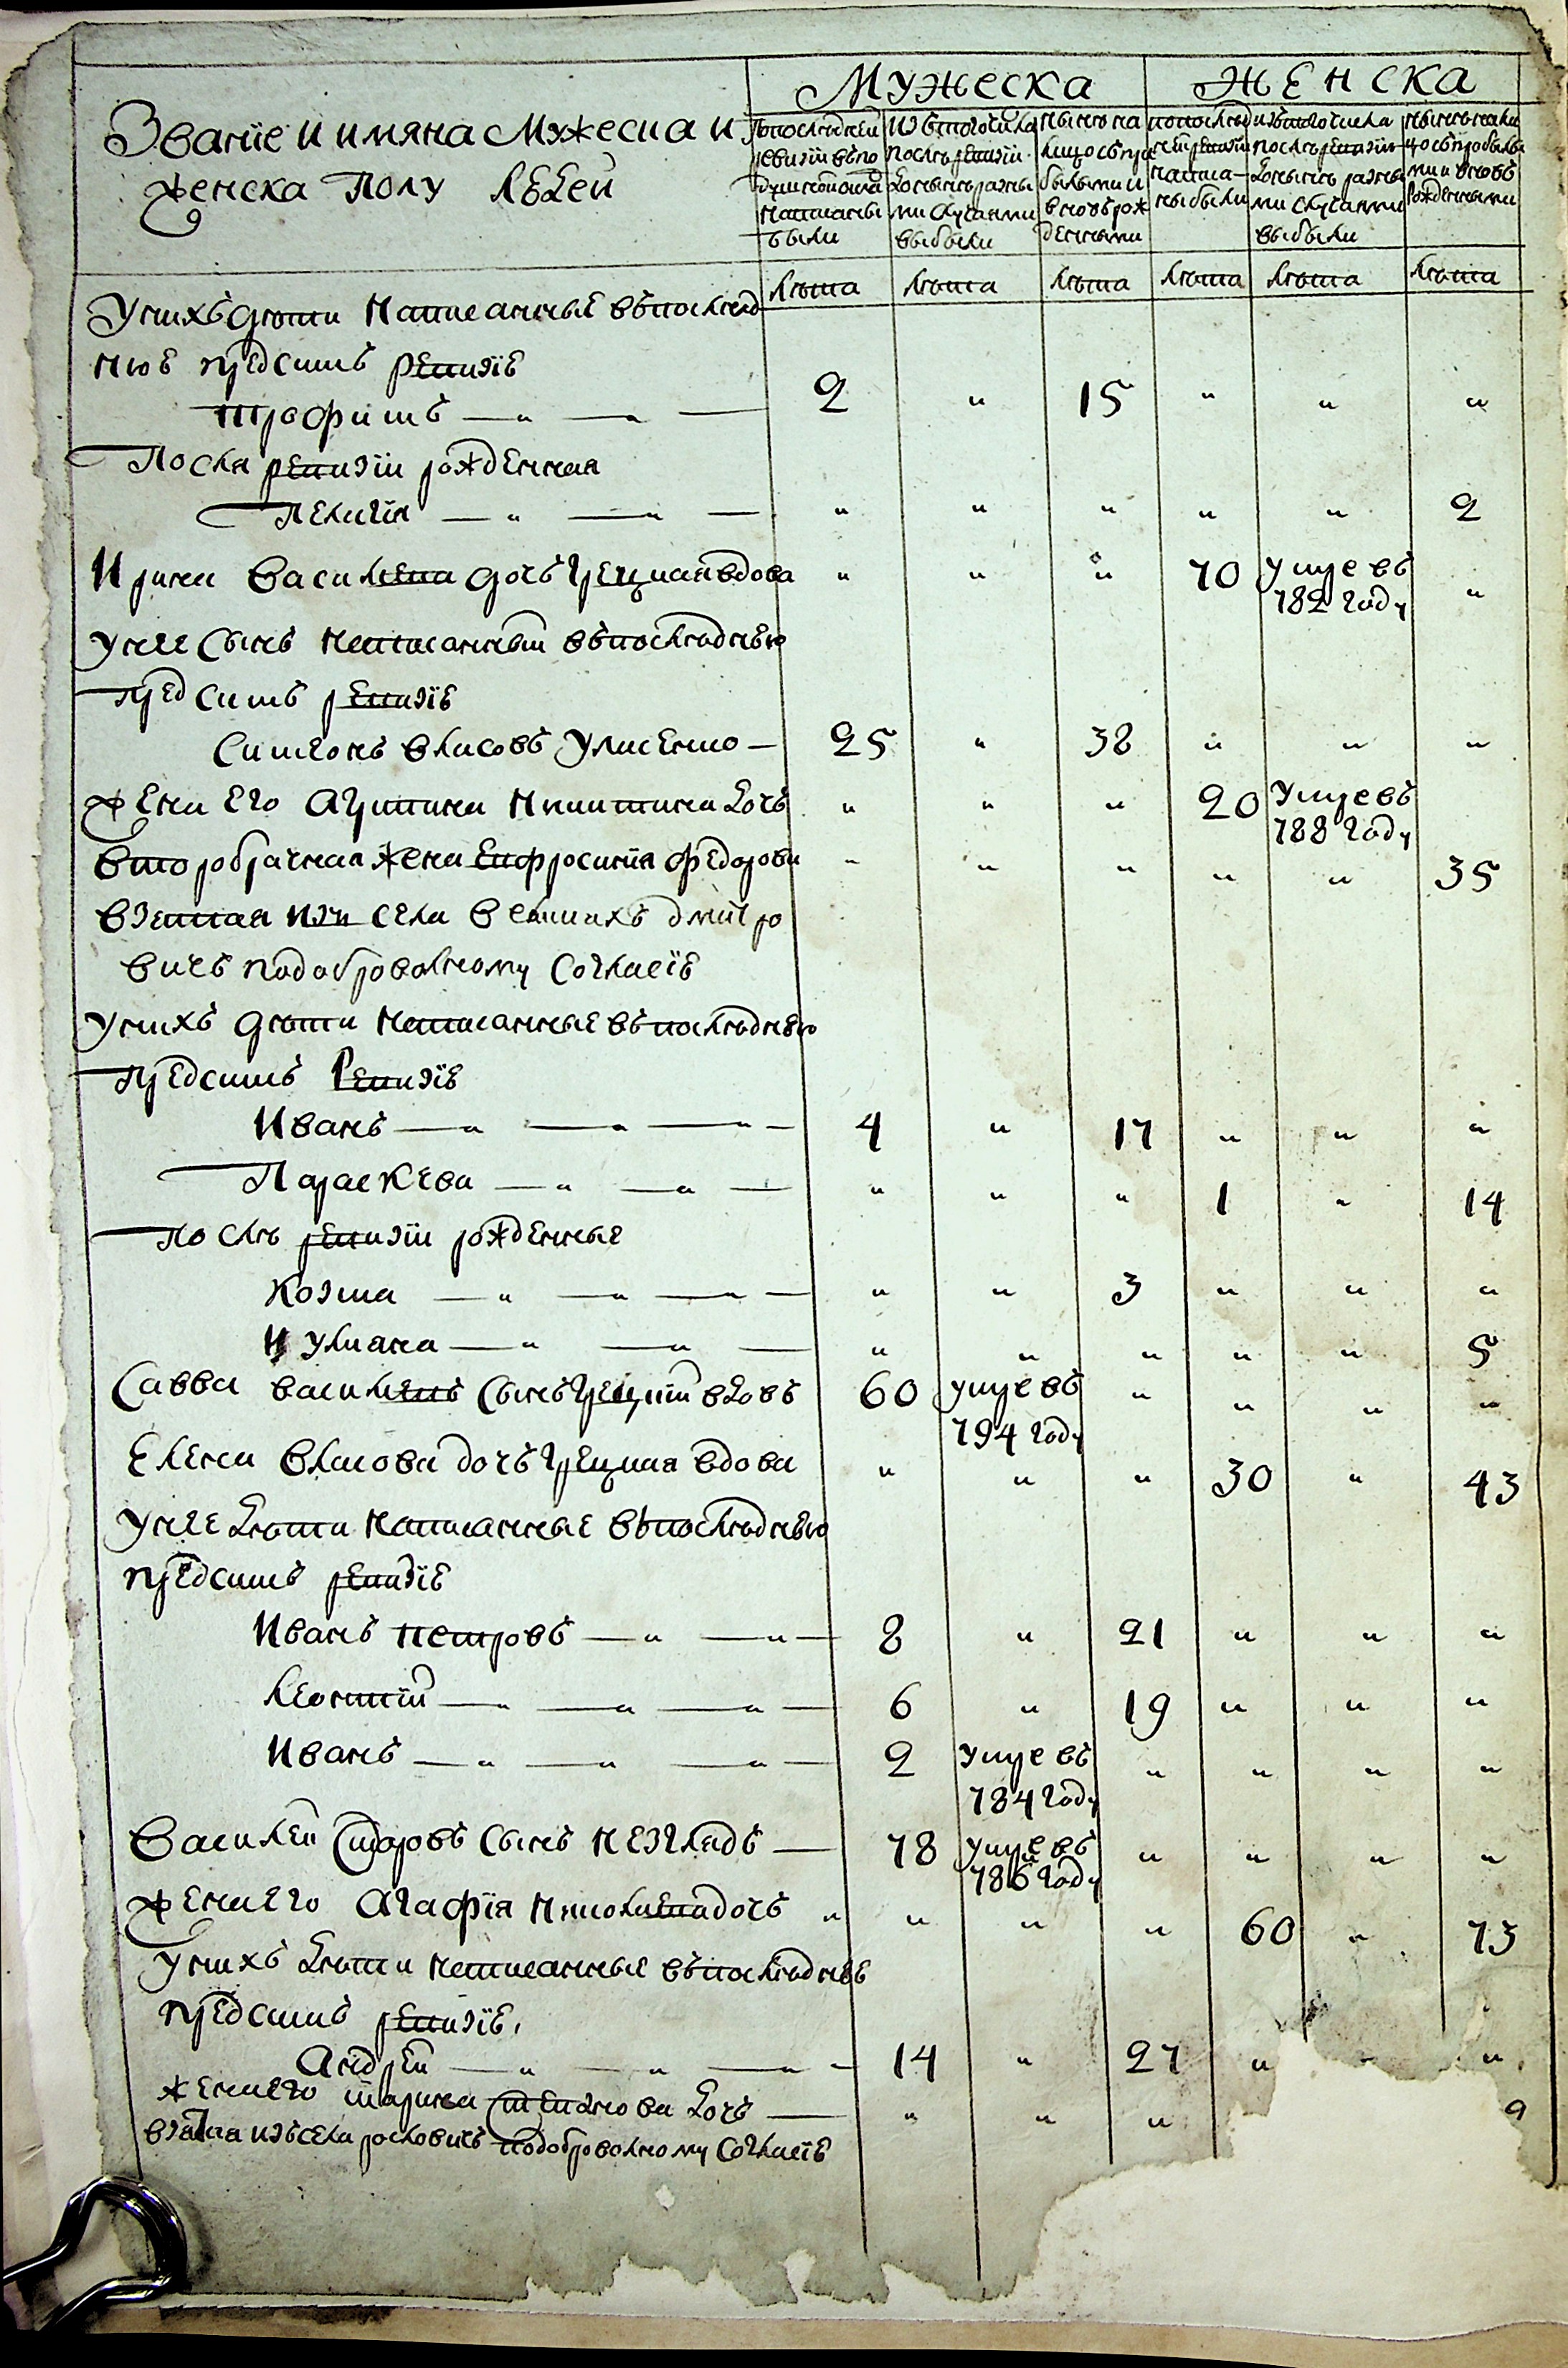 Мужеска Женска
Званїе и имяна Мужеска и
женска полу людей
По последней ревизіи въ подушной окладъ написаны были
Изъ того числа после ревизіи до ныне разны ми случаями выбыли
Ныне на лицо съ при былыми и вновь рож денными
по послед ней ревизїи написа ны были
изъ того числа после ревизїи до ныне разны ми случаями выбыли
ныне на ли цо съ прибылы ми и вновь рожденными
лѣта лѣта лѣта лѣта лѣта лѣта
У нихъ дѣти написанные въ послед
нюю предсимъ ревизїю
Трофимъ — „ — „ — 2 „ 15 „ „ „
Посля ревизїи рожденная
Пелагїя — „ — „ — „ „ „ „ „ 2
Ирина Василева дочь Грецкая вдова „ „ „ 70 умре въ „
782 году
У нее сынъ написанный въ последнюю
предсимъ ревизїю
Симеонъ Власовъ — 25 „ 38 „ „ „
Жена его Агрипина Никитина дочь „ „ „ 20 умре въ
788 году
второбрачная жена Ефросинїя Федорова „ „ „ „ „ 35
взятая изъ села Великихъ Дмитро
вичь по добровольному согласїю
У нихъ дѣти написанные въ последнюю
предсимъ Ревизїю
Иванъ — „ — „ — „ — 4 „ 17 „ „ „
Параскева — „ — „ — „ „ „ 1 „ 14
После ревизїи рожденные
Козма — „ — „ — „ — „ „ 3 „ „ „
Иулиана — „ — „ — „ „ „ „ „ 5
Савва Василевъ сынъ Грецкїй вдовъ 60 умре въ „ „ „ „
794 году
Елена Власова дочь Грецкая вдова „ „ „ 30 „ 43
У нее дѣти написанные въ последнюю
предсимъ ревизїю
Иванъ Петровъ — „ — „ — 8 „ 21 „ „ „
Леонтїй — „ — „ — „ — 6 „ 19 „ „ „
Иванъ — „ — „ — „ — 2 умре въ „ „ „ „
784 году
Василей Сидоровъ сынъ Незгладъ — 78 умре въ „ „ „ „
786 году
Жена его Агафїя Николаева дочь „ „ „ „ 60 „ 73
У нихъ дѣти написанные въ последнюю
предсимъ ревизїю,
Андрей — „ — „ — „ — 14 „ 27 „ „ „
жена его Марина Степанова дочь — „ „ „ 9
взятая изъ села Рословичь по добровольному согласїю